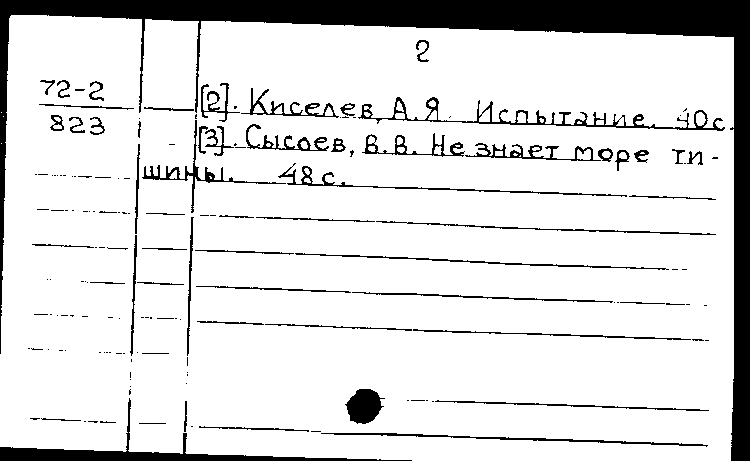 2
72-2
823
[2]. Киселев, А.Я. Испытание. 40с.
[3]. Сысоев, В.В. Не знает море ти-
шины. 48с.